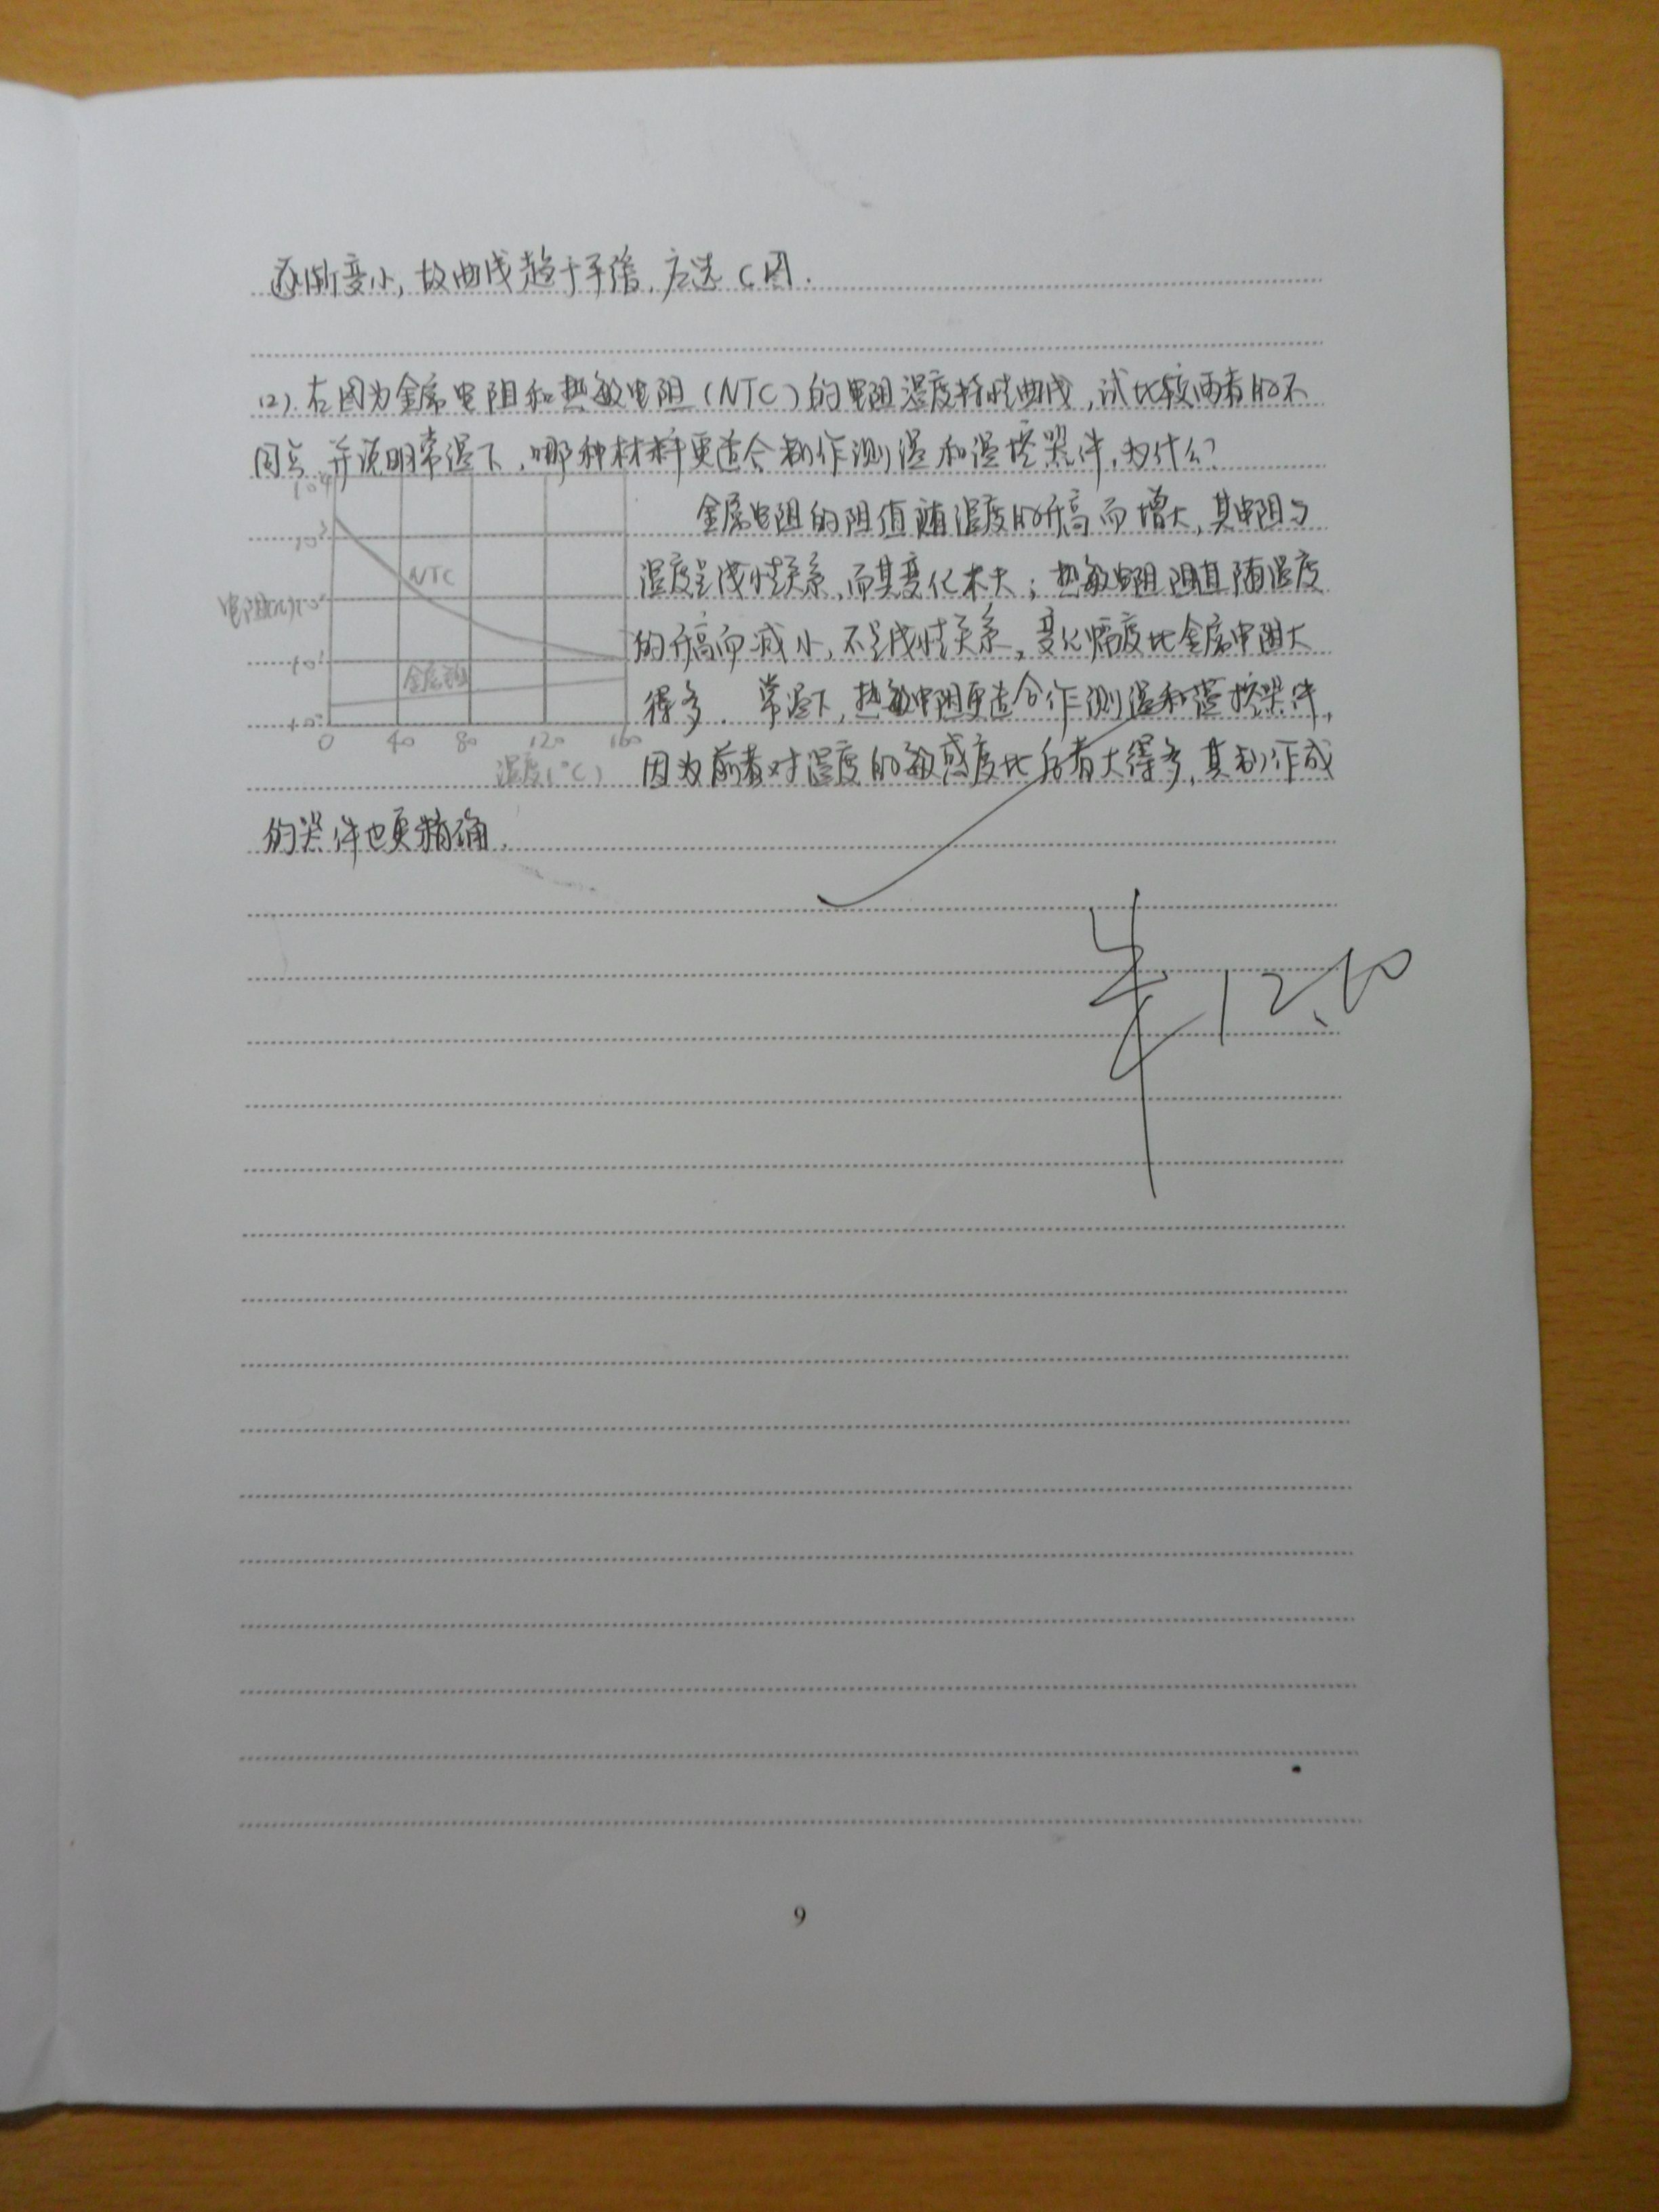 逐渐变小,故曲线趋于平缓.应选C图.
(2).右图为金属电阻和热敏电阻(NTC)的电阻温度特性曲线,试比较两者的不
同点.并说明常温下,哪种材料更适合制作测温和温控器件,为什么?
10⁴
10³
NTC
电阻(Ω)10²
10¹
金属
10⁰
0 40 80 120 160
温度(℃)
金属电阻的阻值随温度的升高而增大,其电阻与
温度呈线性关系,而其变化不大;热敏电阻阻值随温度
的升高而减小,不呈线性关系,变化幅度比金属电阻大
得多.常温下,热敏电阻更适合作测温和温控器件,
因为前者对温度的敏感度比后者大得多,其制作成
的器件也更精确.
12.10
9